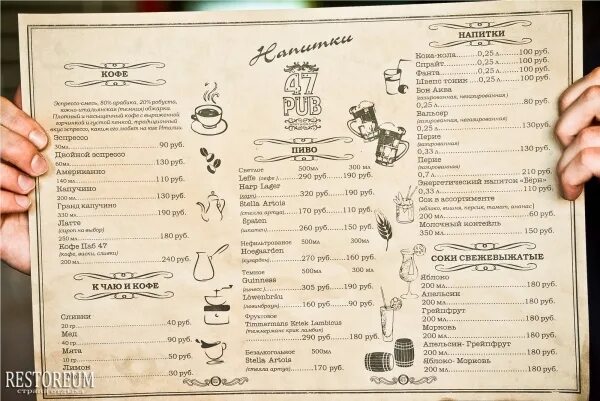 Напитки
47
PUB
КОФЕ
Эспрессо-смесь, 80% арабика, 20% робуста,
южно-итальянская (темная) обжарка
Плотный и насыщенный кофе с выраженной
горчинкой и густой пенкой, традиционный
вкус эспрессо, каким его любят на юге Италии.
Эспрессо
30мл 90 руб.
Двойной эспрессо
60мл 130 руб.
Американо
140 мл 110 руб.
Капучино
200 мл 130 руб.
Гранд капучино
330 мл 190 руб.
Латте
(сироп на выбор)
250 мл 180 руб.
Кофе Паб 47
(кофе, виски, сливки)
200 мл 240 руб.
К ЧАЮ И КОФЕ
Сливки
20 гр 40 руб.
Мед
40 гр 90 руб.
Мята
10 гр 50 руб.
Лимон
30 руб.
ПИВО
Светлое 500мл 300 мл
Leffe (лефф) 290 руб. 190 руб.
Harp Lager
(харп) 320 руб. 190 руб.
Stella Artois
(стелла артуа) 170 руб. 110 руб.
Spaten
(шпатен) 260 руб. 150 руб.
Нефильтрованое 500мл 300мл
Hoegarden
(хугарден) 270 руб. 160 руб.
Темное 500мл 300мл
Guinness
(гиннесс) 305 руб. 190 руб.
Löwenbräu
(левенбраун) 160 руб. 90 руб.
Фруктовое
Timmermans Kriek Lambicus
(тиммерманс крик ламбик)
290 руб. 180 руб.
Безалкогольное 500мл
Stella Artois
(стелла артуа) 170 руб.
НАПИТКИ
Кока-кола 0,25 л 100 руб.
Спрайт 0,25 л 100 руб.
Фанта 0,25 л 100 руб.
Швепс тоник 0,25 л 100 руб.
Бон Аква
(газированная, негазированная)
0,25 л 80 руб.
Вальсер
(газированная, негазированная)
0,25 л 130 руб.
Перие
(газированная)
0,33 л 130 руб.
Перие
(газированная)
0,7 л 210 руб.
Энергетический напиток «Бёрн»
110 руб.
Сок в ассортименте
(яблоко, вишня, персик, томат, ананас)
200 мл 60 руб.
Молочный коктейль
350 мл 150 руб.
СОКИ СВЕЖЕВЫЖАТЫЕ
Яблоко
200 мл 180 руб.
Апельсин
200 мл 180 руб.
Грейпфрут
200 мл 180 руб.
Морковь
200 мл 180 руб.
Апельсин- Грейпфрут
200 мл 180 руб.
Яблоко- Морковь
200 мл 180 руб.
RESTOREUM